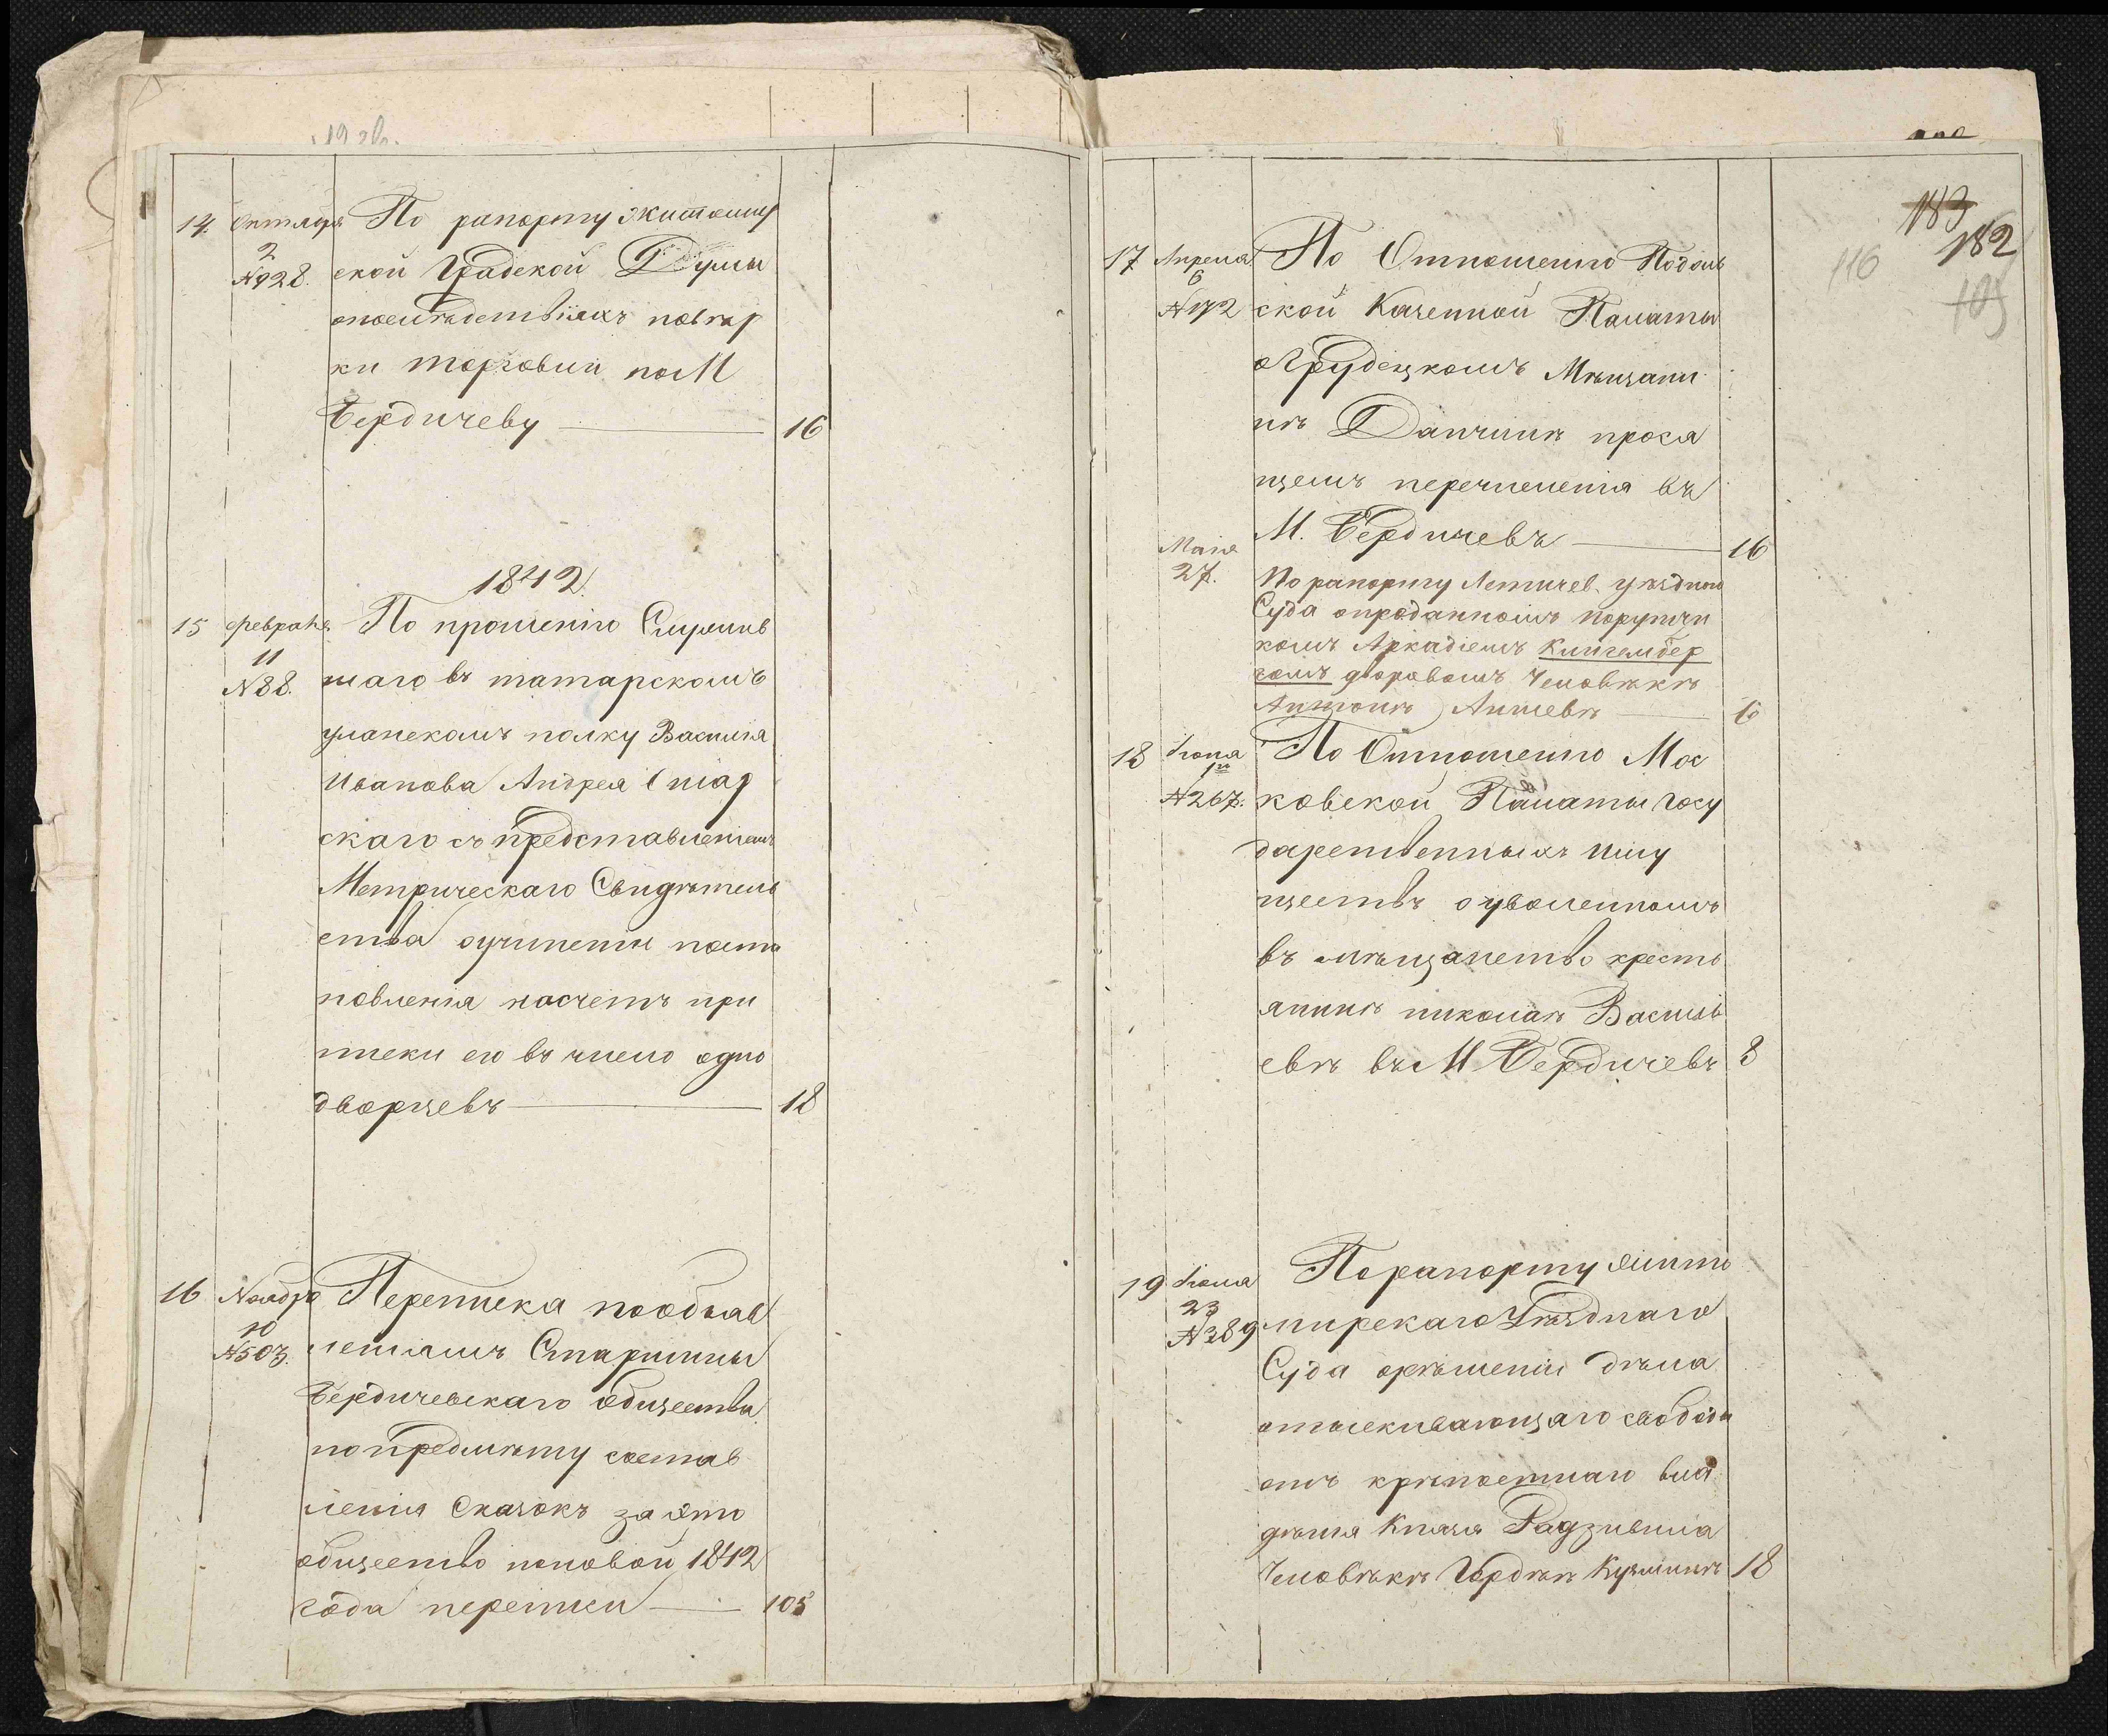 14. Октября По рапорту Житомир
2
№928. ской Градской Думы
о послѣдствіяхъ повѣр
ки торговли по М
Бердичеву — 16
1842
15 февраля По прошенію Служив
11
№88. шаго въ татарскомъ
уланскомъ полку Василія
Иванова Андрея
скаго съ представленіемъ
Метрическаго Свидѣтель
ства о учиненіи поста
новленія насчетъ при
писки его въ число одно
дворцевъ — 18
16 Ноября Переписка по объяв
10
№503. леніямъ Старшины
Бердичевскаго общества
по предмѣту состав
ленія Сказокъ за это
общество по новой 1842
года переписи — 105
183
182
116
105
17 Апреля По Отношенію Подоль
6
№172 ской Казенной Палаты
о Грудецкомъ Мѣщани
нѣ Данчинѣ прося
щемъ перечисленія въ
М. Бердичевъ — 16
Мая
27. По рапорту Летичев. уѣзднаго
Суда о проданномъ поручи
комъ Аркадіемъ Клингембер
гомъ дворовомъ Человѣкѣ
Антонѣ — 6
18 Іюня По Отношенію Мос
1го
№267. ковской Палаты Госу
дарственныхъ Иму
ществъ о уволенномъ
въ мѣщанство кресть
янинѣ николаѣ Василь
евѣ въ М Бердичевъ 8
19 Іюля По рапорту Жито
23
№389 мирскаго Уѣзднаго
Суда о рѣшеніи дѣла
отыскивающаго свободы
отъ крѣпостнаго вла
дѣнія Князя Радзивила
Человѣкѣ Гордѣѣ Кузминѣ 18